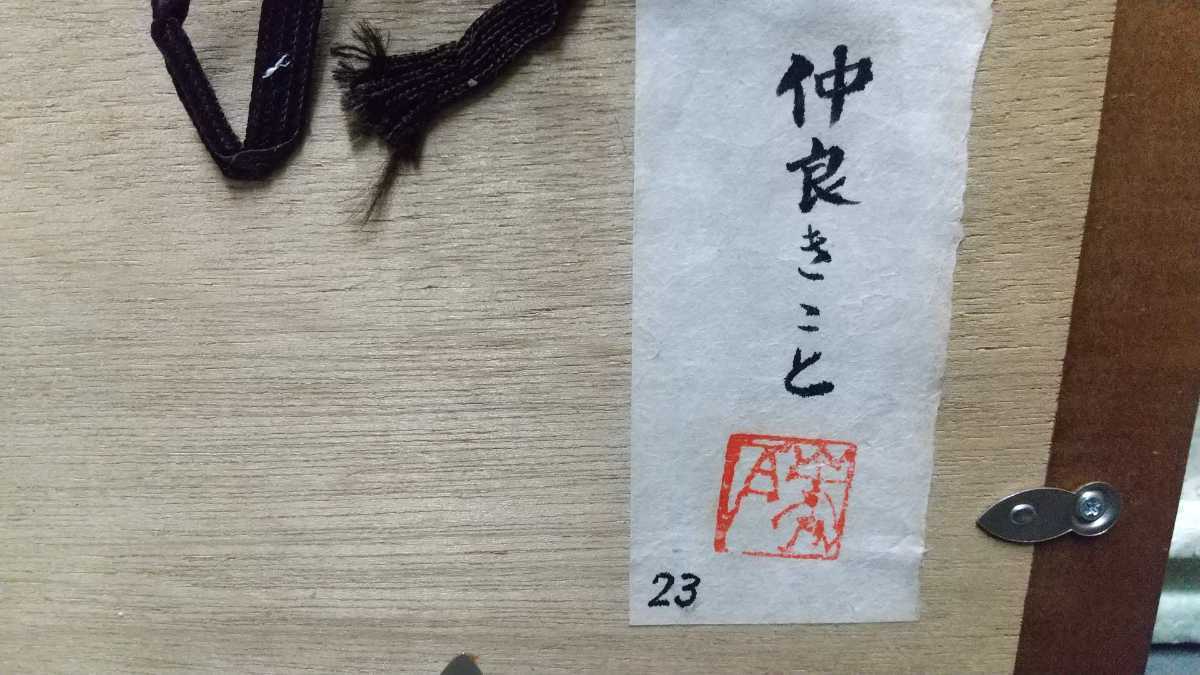 仲良きこと
23